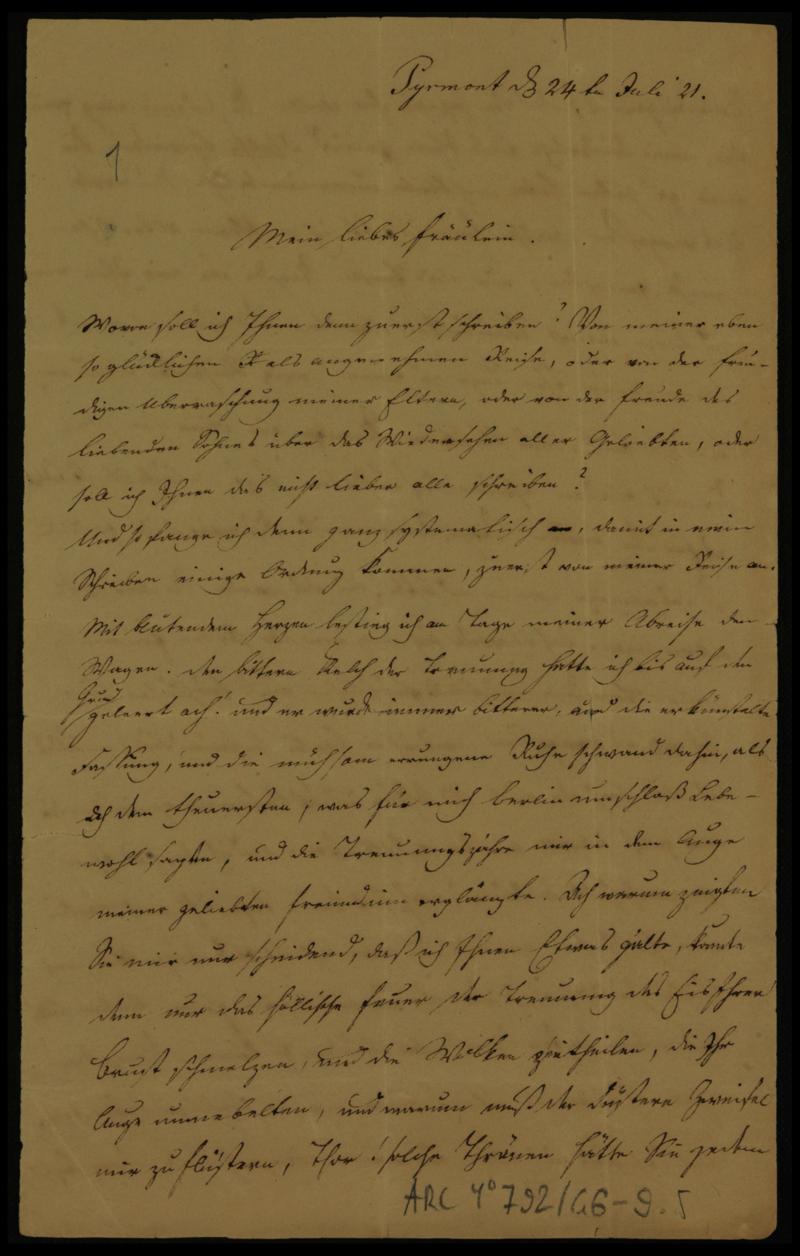 Pyrmont d 24 te Juli 21.
1
Mein liebes Fräulein.
Wovon soll ich Ihnen denn zuerst schreiben? Von meiner eben
so glücklichen als angenehmen Reise, oder von der freu-
digen Ueberraschung meiner Eltern, oder von der Freude des
liebenden Sohnes über das Wiedersehen aller Geliebten, oder
soll ich Ihnen dies nicht lieber alles schreiben?
Und so fange ich denn ganz systematisch an, damit in mein
Schreiben einige Ordnung komme, zuerst von meiner Reise an.
Mit blutendem Herzen bestieg ich am Tage meiner Abreise den
Wagen. Den bittern Kelch der Trennung hatte ich bis auf den
Grund
geleert ach! und er wurde immer bitterer, und die erkünstelte
Fassung, und die mühsam errungene Ruhe schwand dahin, als
ich dem theuersten, was für mich Berlin umschloß Lebe-
wohl sagte, und die Trennungszähre mir in dem Auge
meiner geliebten Freundinn erglänzte. Ach warum zeigten
Sie mir nur scheidend, daß ich Ihnen Etwas gälte, konnte
denn nur das höllische Feuer der Trennung das Eis Ihrer
Brust schmelzen, und die Wolken zertheilen, die Ihr
Auge umnebelten, und warum muß der düstere Zweifel
mir zuflüstern, Thor! solche Thränen hätte Sie jedem
ARC 4° 792/G6-9.5